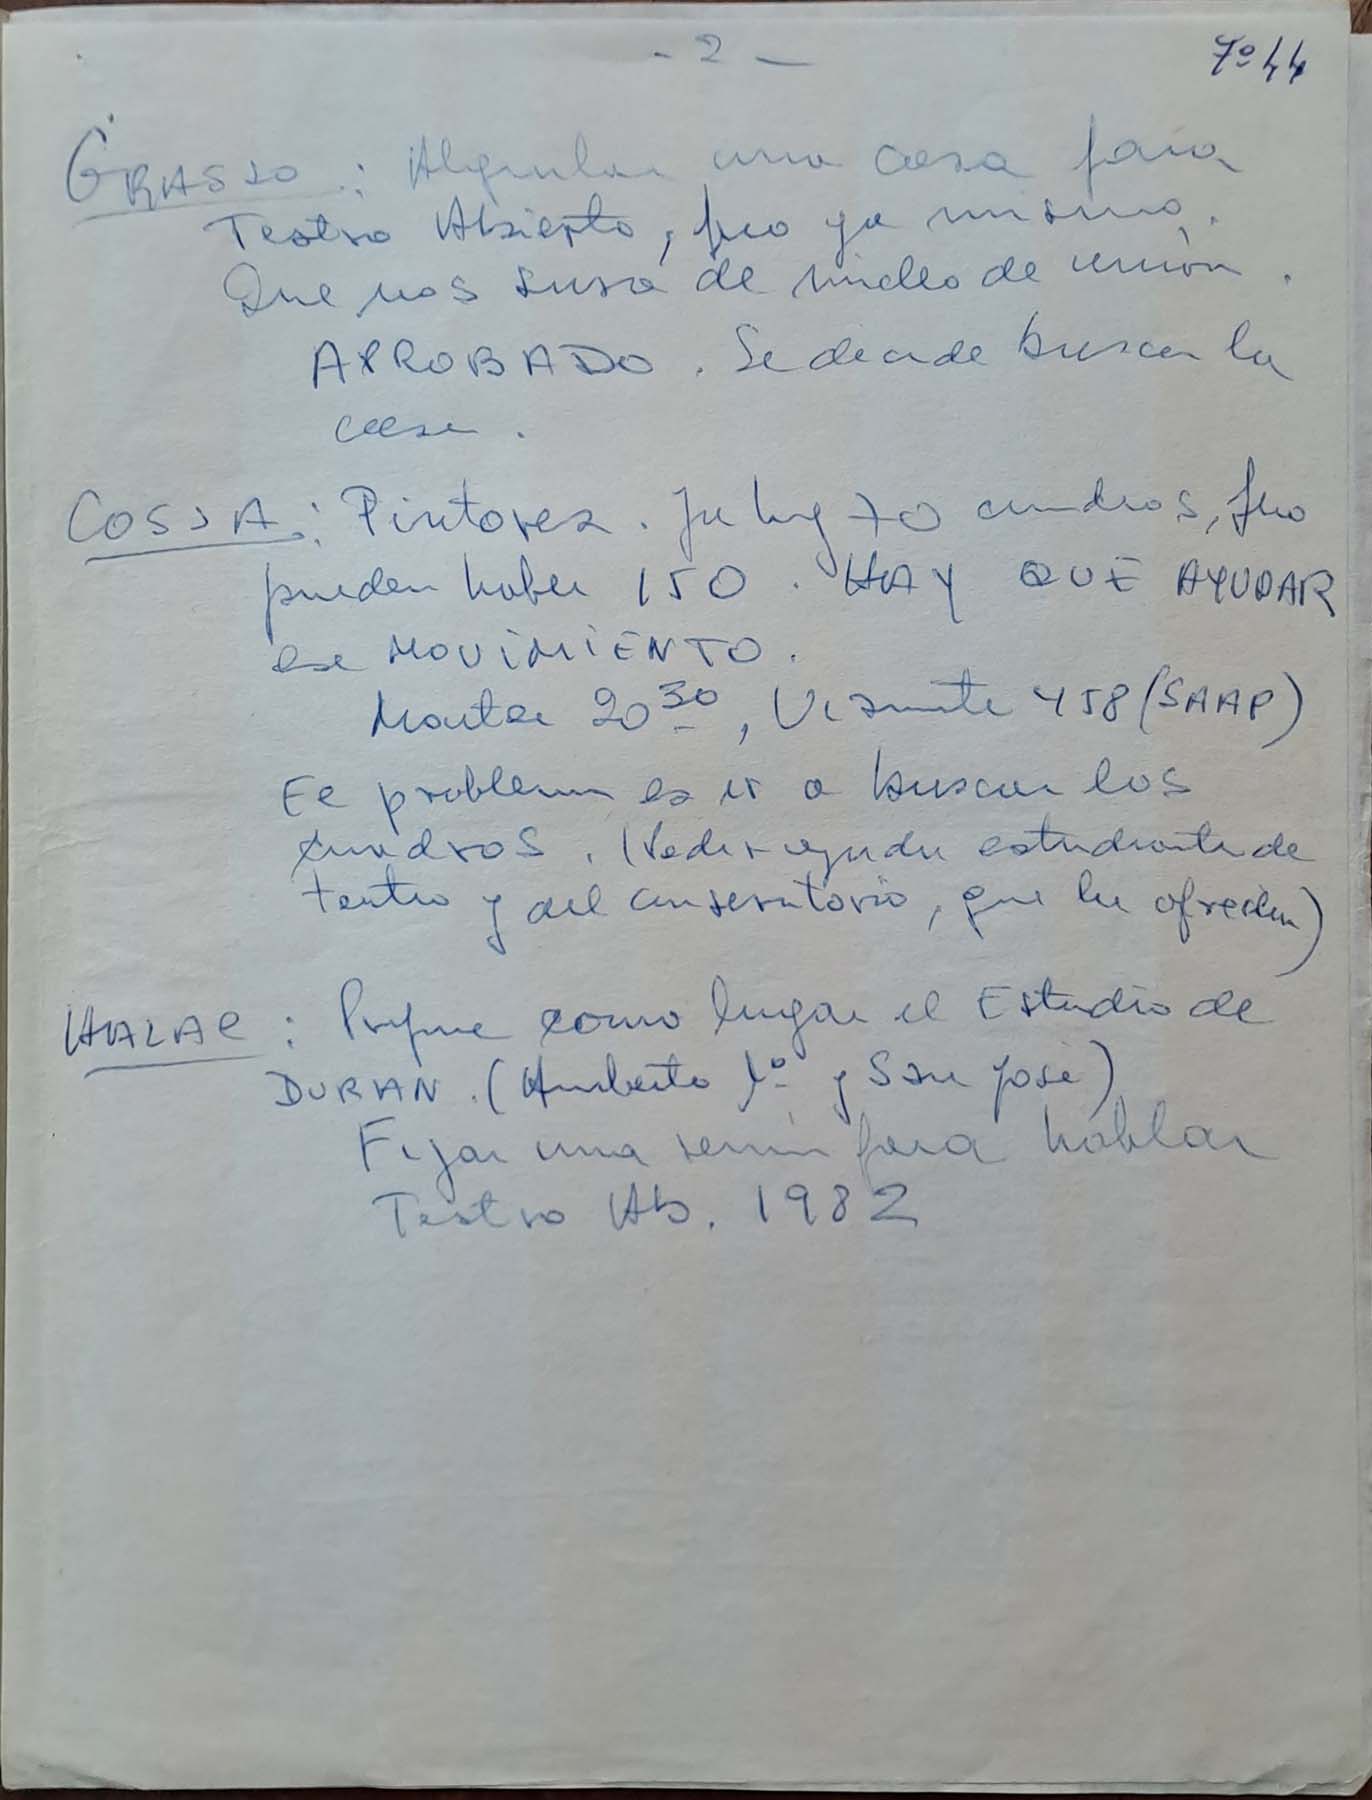 - 2 -
7º 44
GRASSO : Alquilar una casa para
Teatro Abierto, pero ya mismo.
Que nos sirva de núcleo de unión.
APROBADO. Se decide buscar la
casa.
COSSA : Pintores. Ya hay 70 cuadros, pero
pueden haber 150. HAY QUE AYUDAR
ese MOVIMIENTO.
Martes 20 30, Viamonte 458 (SAAP)
El problema es ir a buscar los
cuadros. (Pedir ayuda estudiante de
teatro y del conservatorio, que se ofrecen)
HALAC : Propone como lugar el Estudio de
DURAN. (Humberto 1º y San José)
Fijar una reunión para hablar
Teatro Ab. 1982